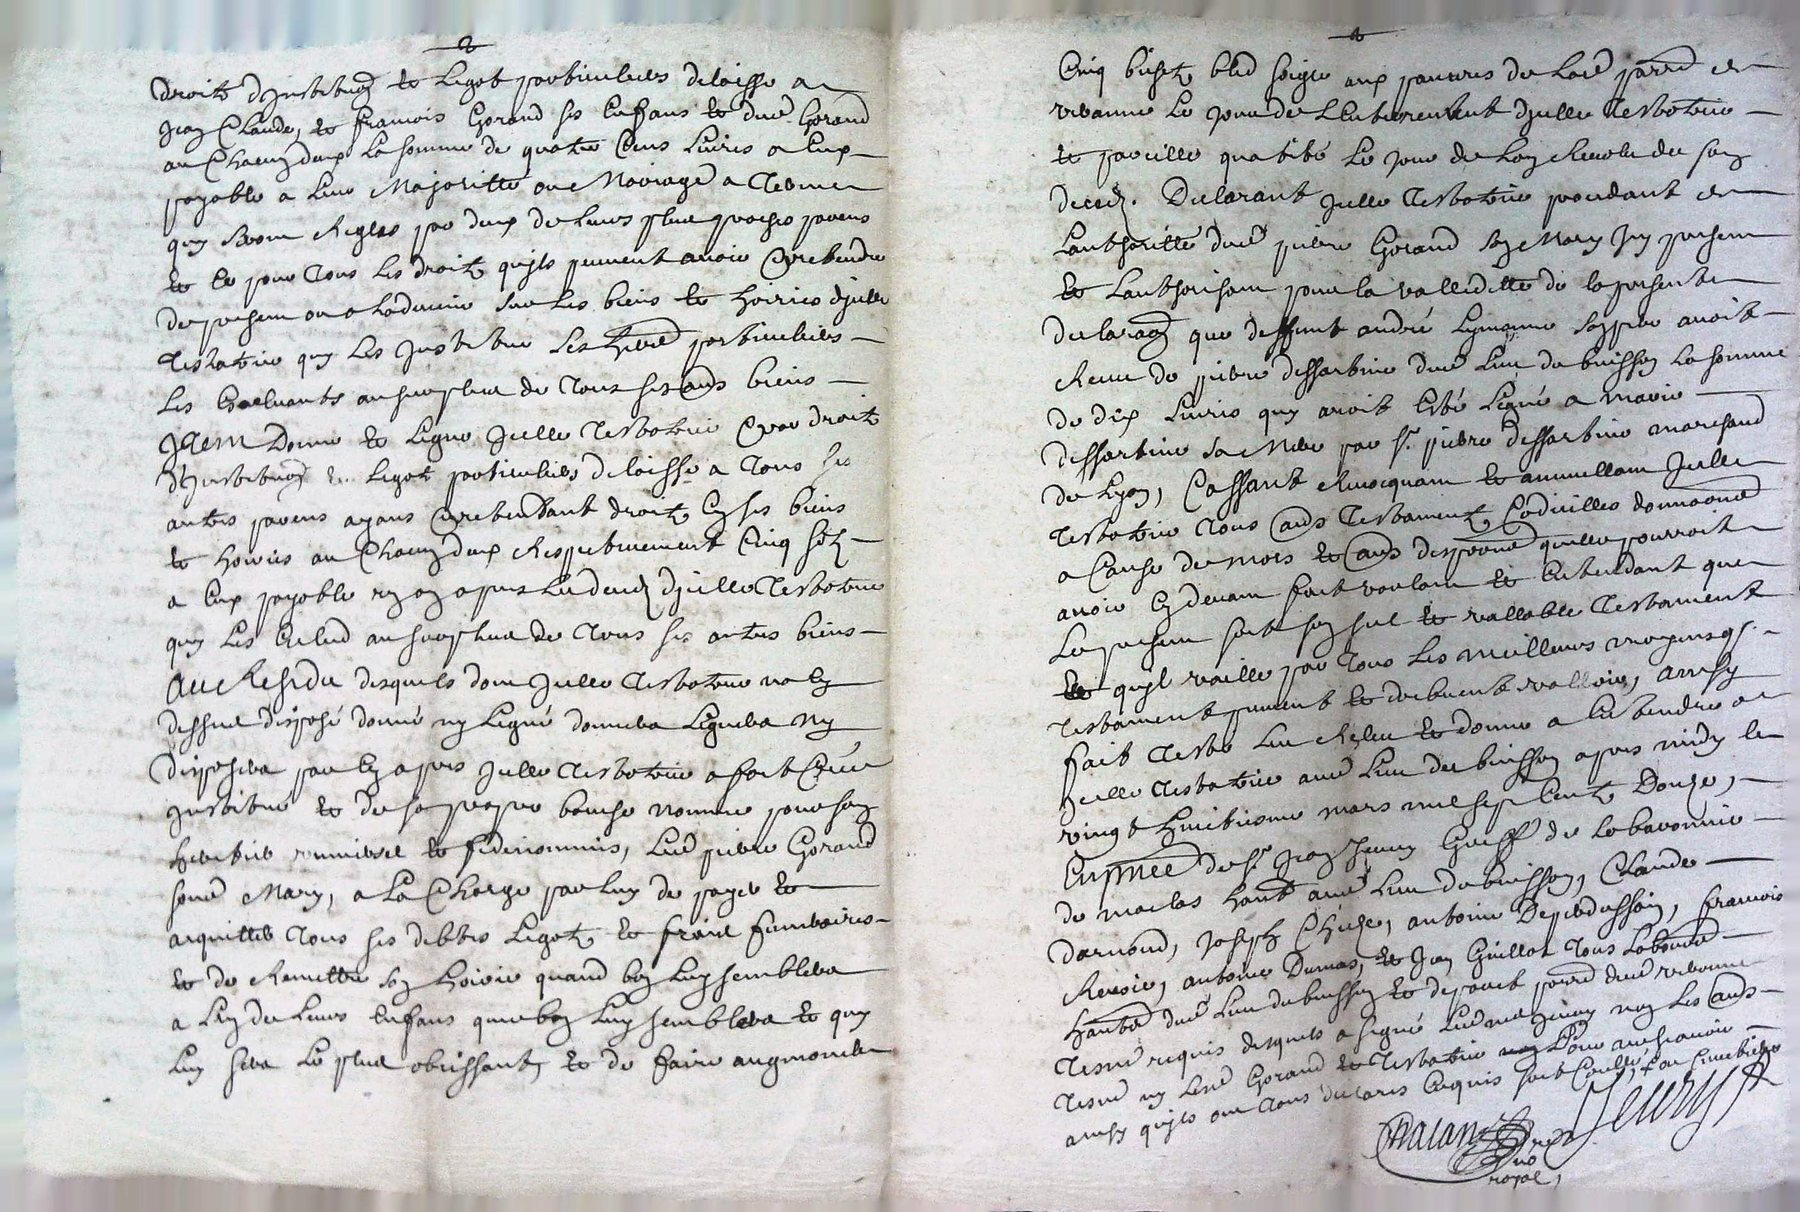 droits d'institu͠on et Legat particuliers delaisse a
Jean Claude, et francois Gorand ses Enfans et dud Gorand
au Chacung deux La somme de quatre Cens Livres a Eux
payable a Leur Majoritté ou Mariage a Terme
quy seront Regles par deux de Leurs plus proches parens
et ce pour Tous Les droits quils peuvent avoir Et pretendre
de present ou a Ladvenir sur Les biens et hoiries d'jcelle
Testatrice quy Les Institue ses herᵉ particuliers
Les Excluants au surplus de Tous ses auᵗˢ biens
Item Donne et Legue Jcelle Testatrice Et par droit
d'Institu͠on et Legat particuliers delaisse a Tous ses
autres parens ayans Et pretendant droits En ses biens
et hoiries au Chacung deux Respectivement Cinq solz
a Eux payable ung an apres Le deces d'jcelle Testatrice
quy Les Exclud au surplus de Tous ses autres biens
Au Residu desquels dont Jcelle Testatrice na Cy
dessus disposé donné ny Legué donnera Leguera ny
Disposera par Cy apres Jcelle Testatrice a fait Créé
institué et de sa propre bouche nommé pour son
heritier universel et fideicommis, Led pierre Gorand
sond Mary, a La Charge par Luy de payer et
acquitter Tous ses debtes Legatz et fraix funeraires
et de Remettre son hoirie quand bon Luy semblera
a L'un de Leurs Enfans que bon Luy semblera et quy
Luy sera Le plus obeissant, et de faire aumosner
Cinq bichetz bled seigle aux pauvres de Lad parr͠e de
Le Jour de L'Enterrement d'jcelle Testatrice
et pareille quatité Le Jour de Lan Revolu de son
deces. Declarant Jcelle Testatrice procedant de
Lauthoritté dud pierre Gorand son Mary Icy present
et Lauthorisant pour la vallidité de la presente
declara͠on que deffunt andré Lymonne son pere avoit
Receu de pierre dessartine dud Lieu du buisson La somme
de dix Livres quy avoit Esté Legué a marie
dessartine sa Mere par Sʳ pierre dessartine marchand
de Lyon, Cassant Revocquant et annullant Jcelle
Testatrice Tous auᵗˢ Testament, Codicilles donna͠one
a Cause de mort et auᵗˢ disposi͠one quelle pourroit
avoir Cy devant fait voulant et Entendant que
Le present soit son seul et vallable Testament
et quyl vaille par Tous Les meilleurs moyens qͤ
Testament peuvent et doibvent valloir, ainsy
fait Testé Leu Releu et donné a Entendre a
Jcelle Testatrice aud Lieu du buisson apres midy Le
vingt huictiesme mars mil sept Cent Douze,
En pn͠ce de Sʳ Jean Jeury Greffʳ de La baronnie
de maclas habᵗ aud Lieu du buisson, Claude
Darnoud, Joseph Chuze, antoine Depredusson, francois
antoine Dumas, et Jean Guillot Tous Laboureurs
habᵗˢ dud Lieu du buisson et de part parr͠e dud
Tesmᵉ requis desquels a signé Led mᵉ Jeury non Les auᵗˢ
Tesmᵉ ny Led Gorand et Testatrice pour ne scavoir
ainsy quils ont Tous declarés Enquis soit Controllé,
Jeury
noᵉ
royal,